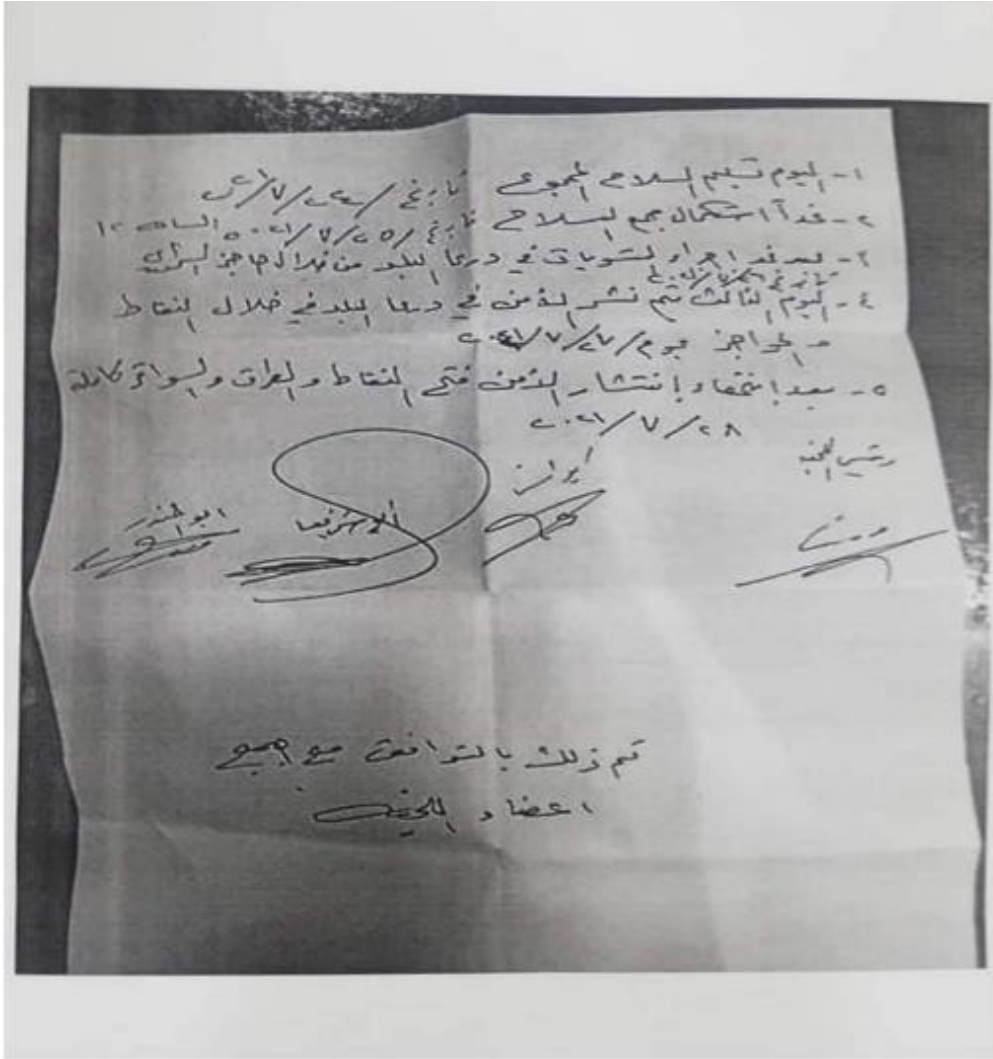 ١- اليوم تسليم السلاح المجموع تاريخ ٢٤/٧/٢٠٢١
٢- غداً استكمال جمع السلاح تاريخ ٢٥/٧/٢٠٢١ الساعة ١٢
٣- بعد غد اجراء التسويات في درعا البلد من خلال حاجز السرايا
تاريخ
٤- اليوم الثالث يتم نشر الأمن في درعا البلد في خلال النقاط
و الحواجز يوم ٢٧/٧/٢٠٢١
٥- بعد إنتهاء إنتشار الأمن فتح النقاط و الطرق و السواتر كاملة
٢٨/٧/٢٠٢١
رئيس اللجنة
ابو المنذر
تم ذلك بالتوافق مع جميع
اعضاء اللجنة